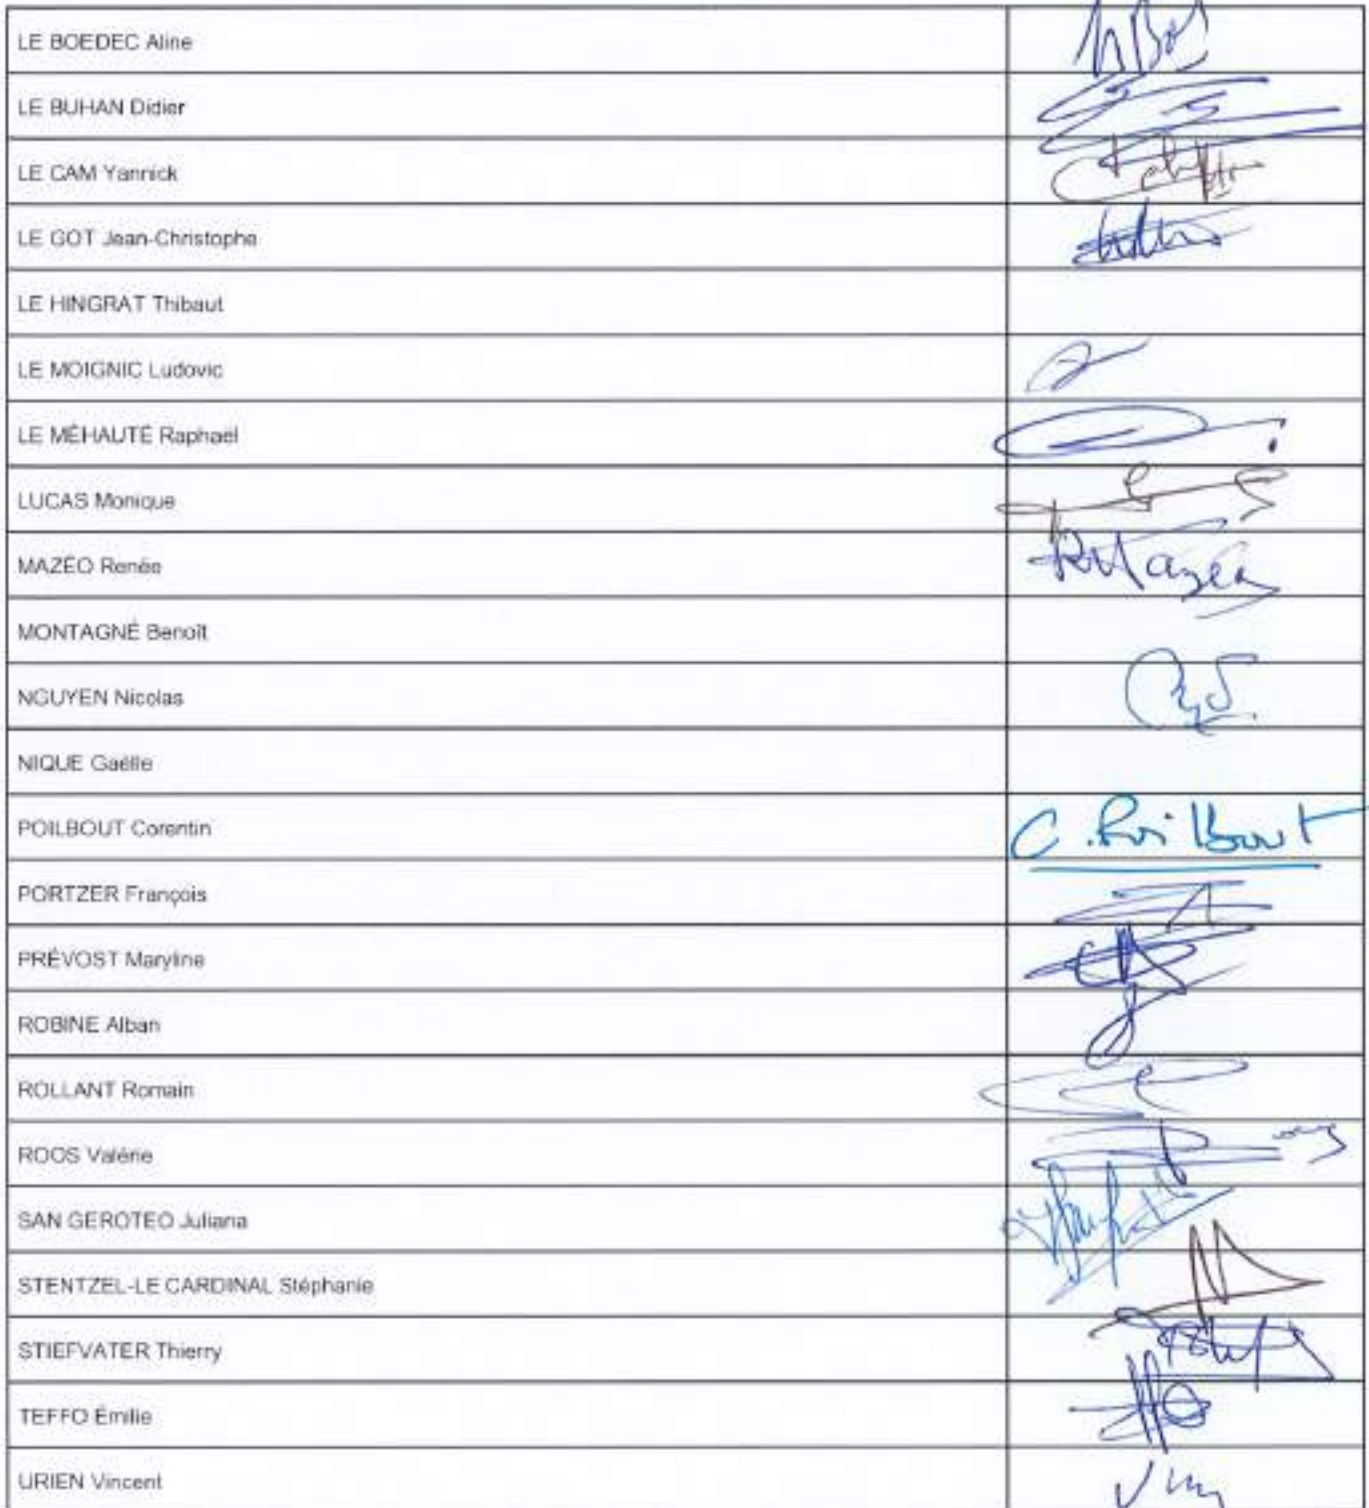 LE BOEDEC Aline
LE BUHAN Didier
LE CAM Yannick
LE GOT Jean-Christophe
LE HINGRAT Thibaut
LE MOIGNIC Ludovic
LE MÉHAUTÉ Raphaël
LUCAS Monique
MAZÉO Renée R Mazéo
MONTAGNÉ Benoît
NGUYEN Nicolas
NIQUE Gaëlle
POILBOUT Corentin C. Poilbout
PORTZER François
PRÉVOST Maryline
ROBINE Alban
ROLLANT Romain
ROOS Valérie
SAN GEROTEO Juliana
STENTZEL-LE CARDINAL Stéphanie
STIEFVATER Thierry
TEFFO Émilie
URIEN Vincent